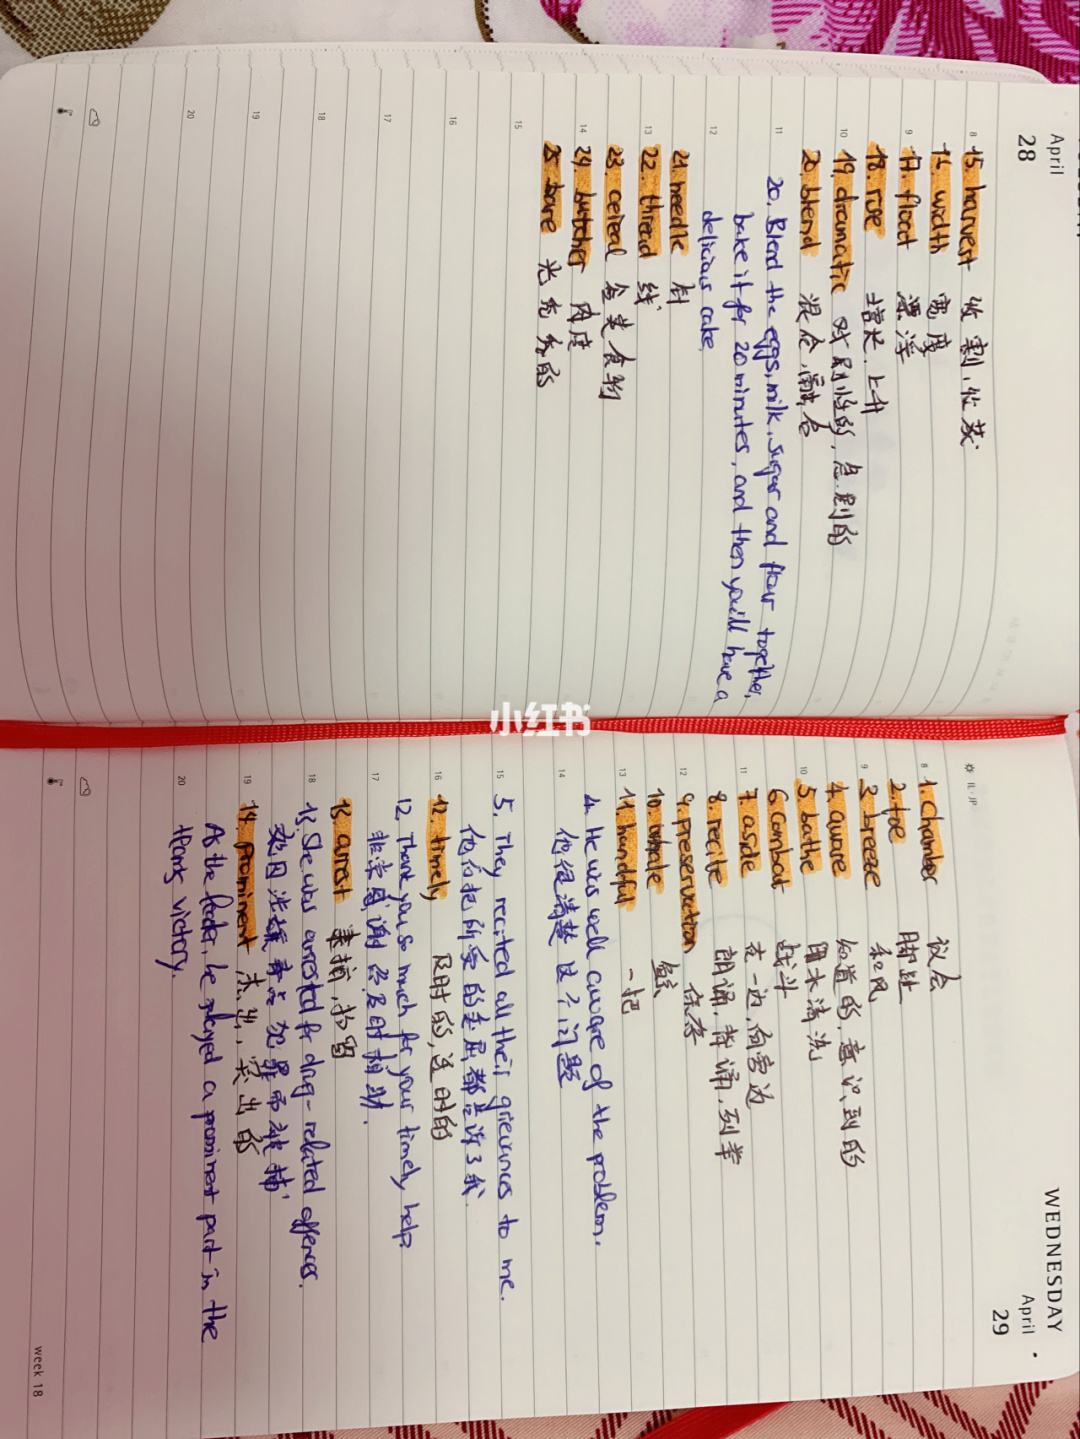 April
28
8
15. harvest 收割,收获
16. width 宽度
9
17. float 漂浮
18. rise 增长.上升
10
19. dramatic 戏剧性的,急剧的
20. blend 混合,融合
11
20. Blend the eggs, milk, sugar and flour together,
bake it for 20 minutes, and then you'll have a
12
delicious cake.
21. needle 针
13
22. thread 线
23. cereal 谷类食物
14
24. butcher 肉店
25. bare 光秃秃的
15
16
17
18
19
20
小红书
WEDNESDAY
April
29
IL·JP
8
1. chamber 议会
2. toe 脚趾
9
3. breeze 和风
4. aware 知道的,意识到的
10
5. bathe 用水清洗
6. combat 战斗
11
7. aside 在一边,向旁边
8. recite 朗诵,背诵,列举
12
9. preservation 保存
10.
13
11. handful 一把
4. He was well aware of the problem.
14
他很清楚这个问题
15
5. They recited all their grievances to me.
他们把所受的委屈都告诉了我.
16
12. timely 及时的,适时的
12. Thank you so much for your timely help.
17
非常感谢您及时相助.
13 arrest 逮捕,扣留
18
13. She was arrested for drug-related offences.
她因涉嫌毒品犯罪而被捕
19
14. prominent 杰出,突出的
As the leader, he played a prominent part in the
20
team's victory.
week 18